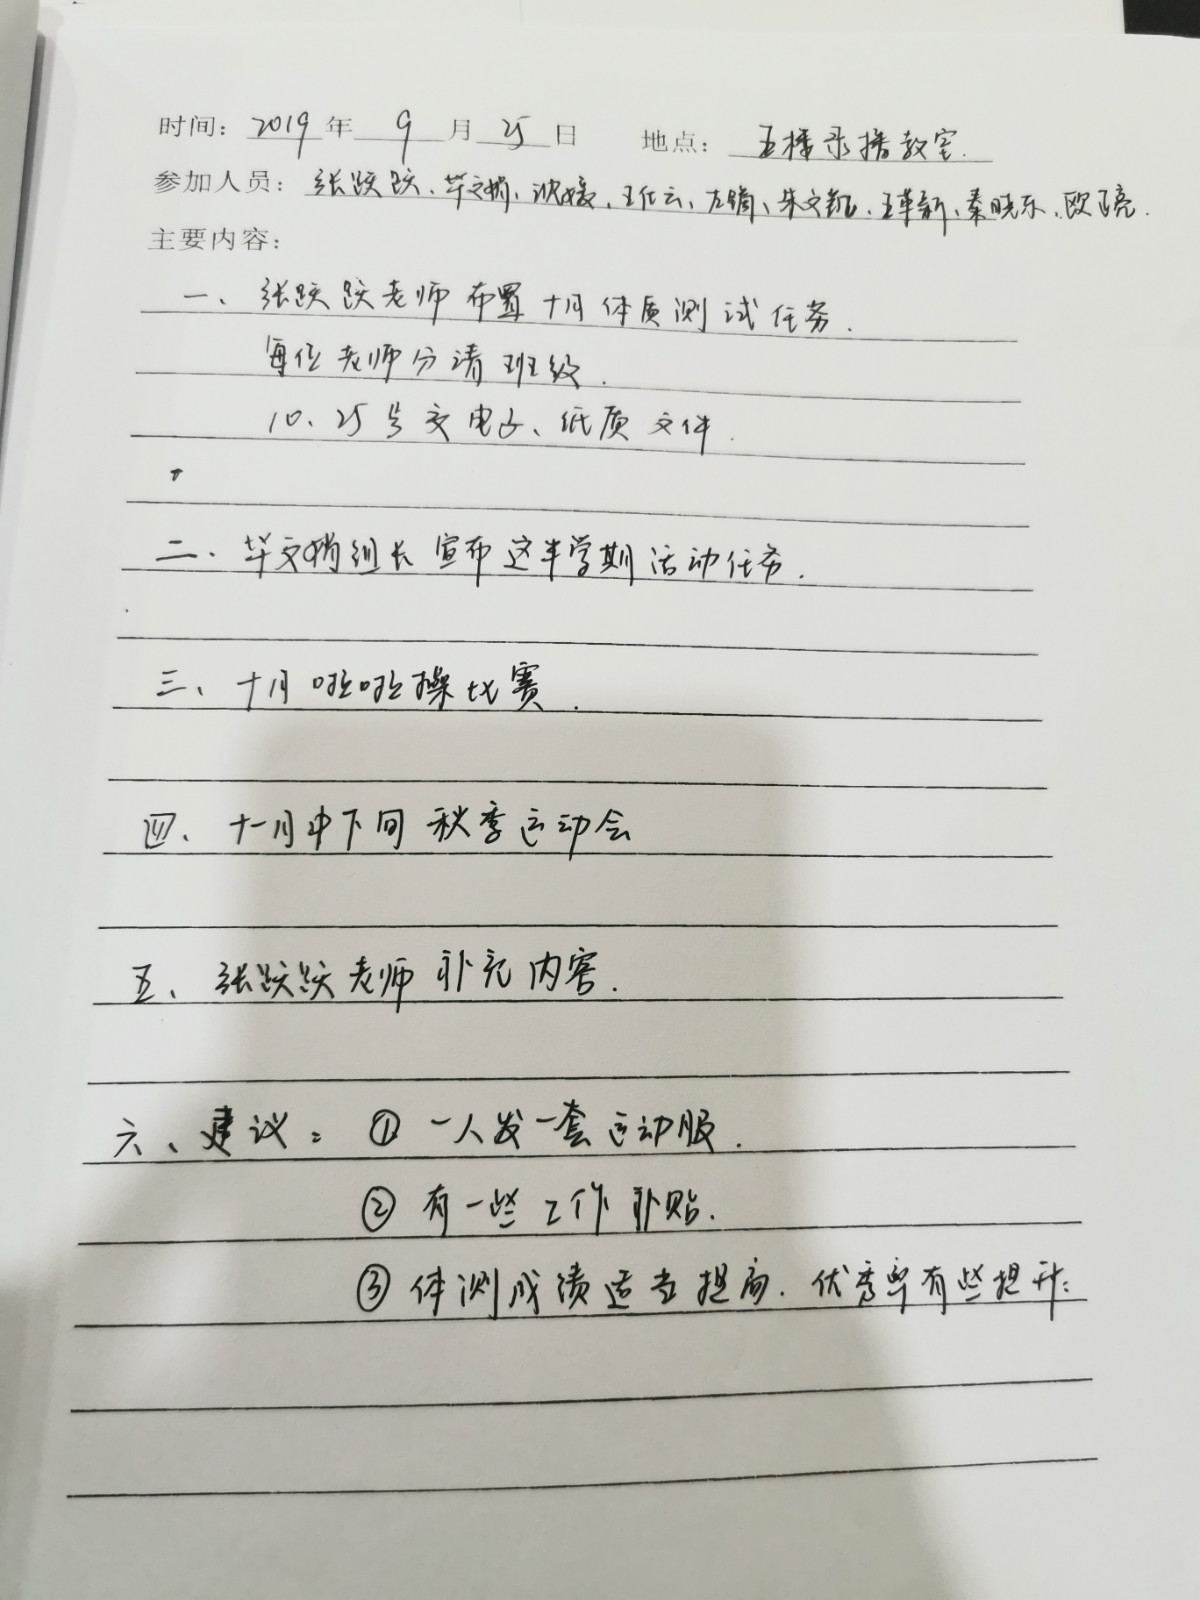 时间：2019年9月25日 地点：五楼录播教室.
参加人员：张跃跃、毕文娟、沈媛、王仕云、左镝、朱文凯、王革新、秦晓东、欧亮.
主要内容：
一、张跃跃老师布置十月体质测试任务.
每位老师分请班级.
10、25号交电子、纸质文件.
二、毕文娟组长宣布这半学期活动任务.
三、十月啦啦操比赛.
四、十一月中下旬秋季运动会
五、张跃跃老师补充内容.
六、建议：①一人发一套运动服.
②有一些工作补贴.
③体测成绩适当提高.优秀率有些提升：